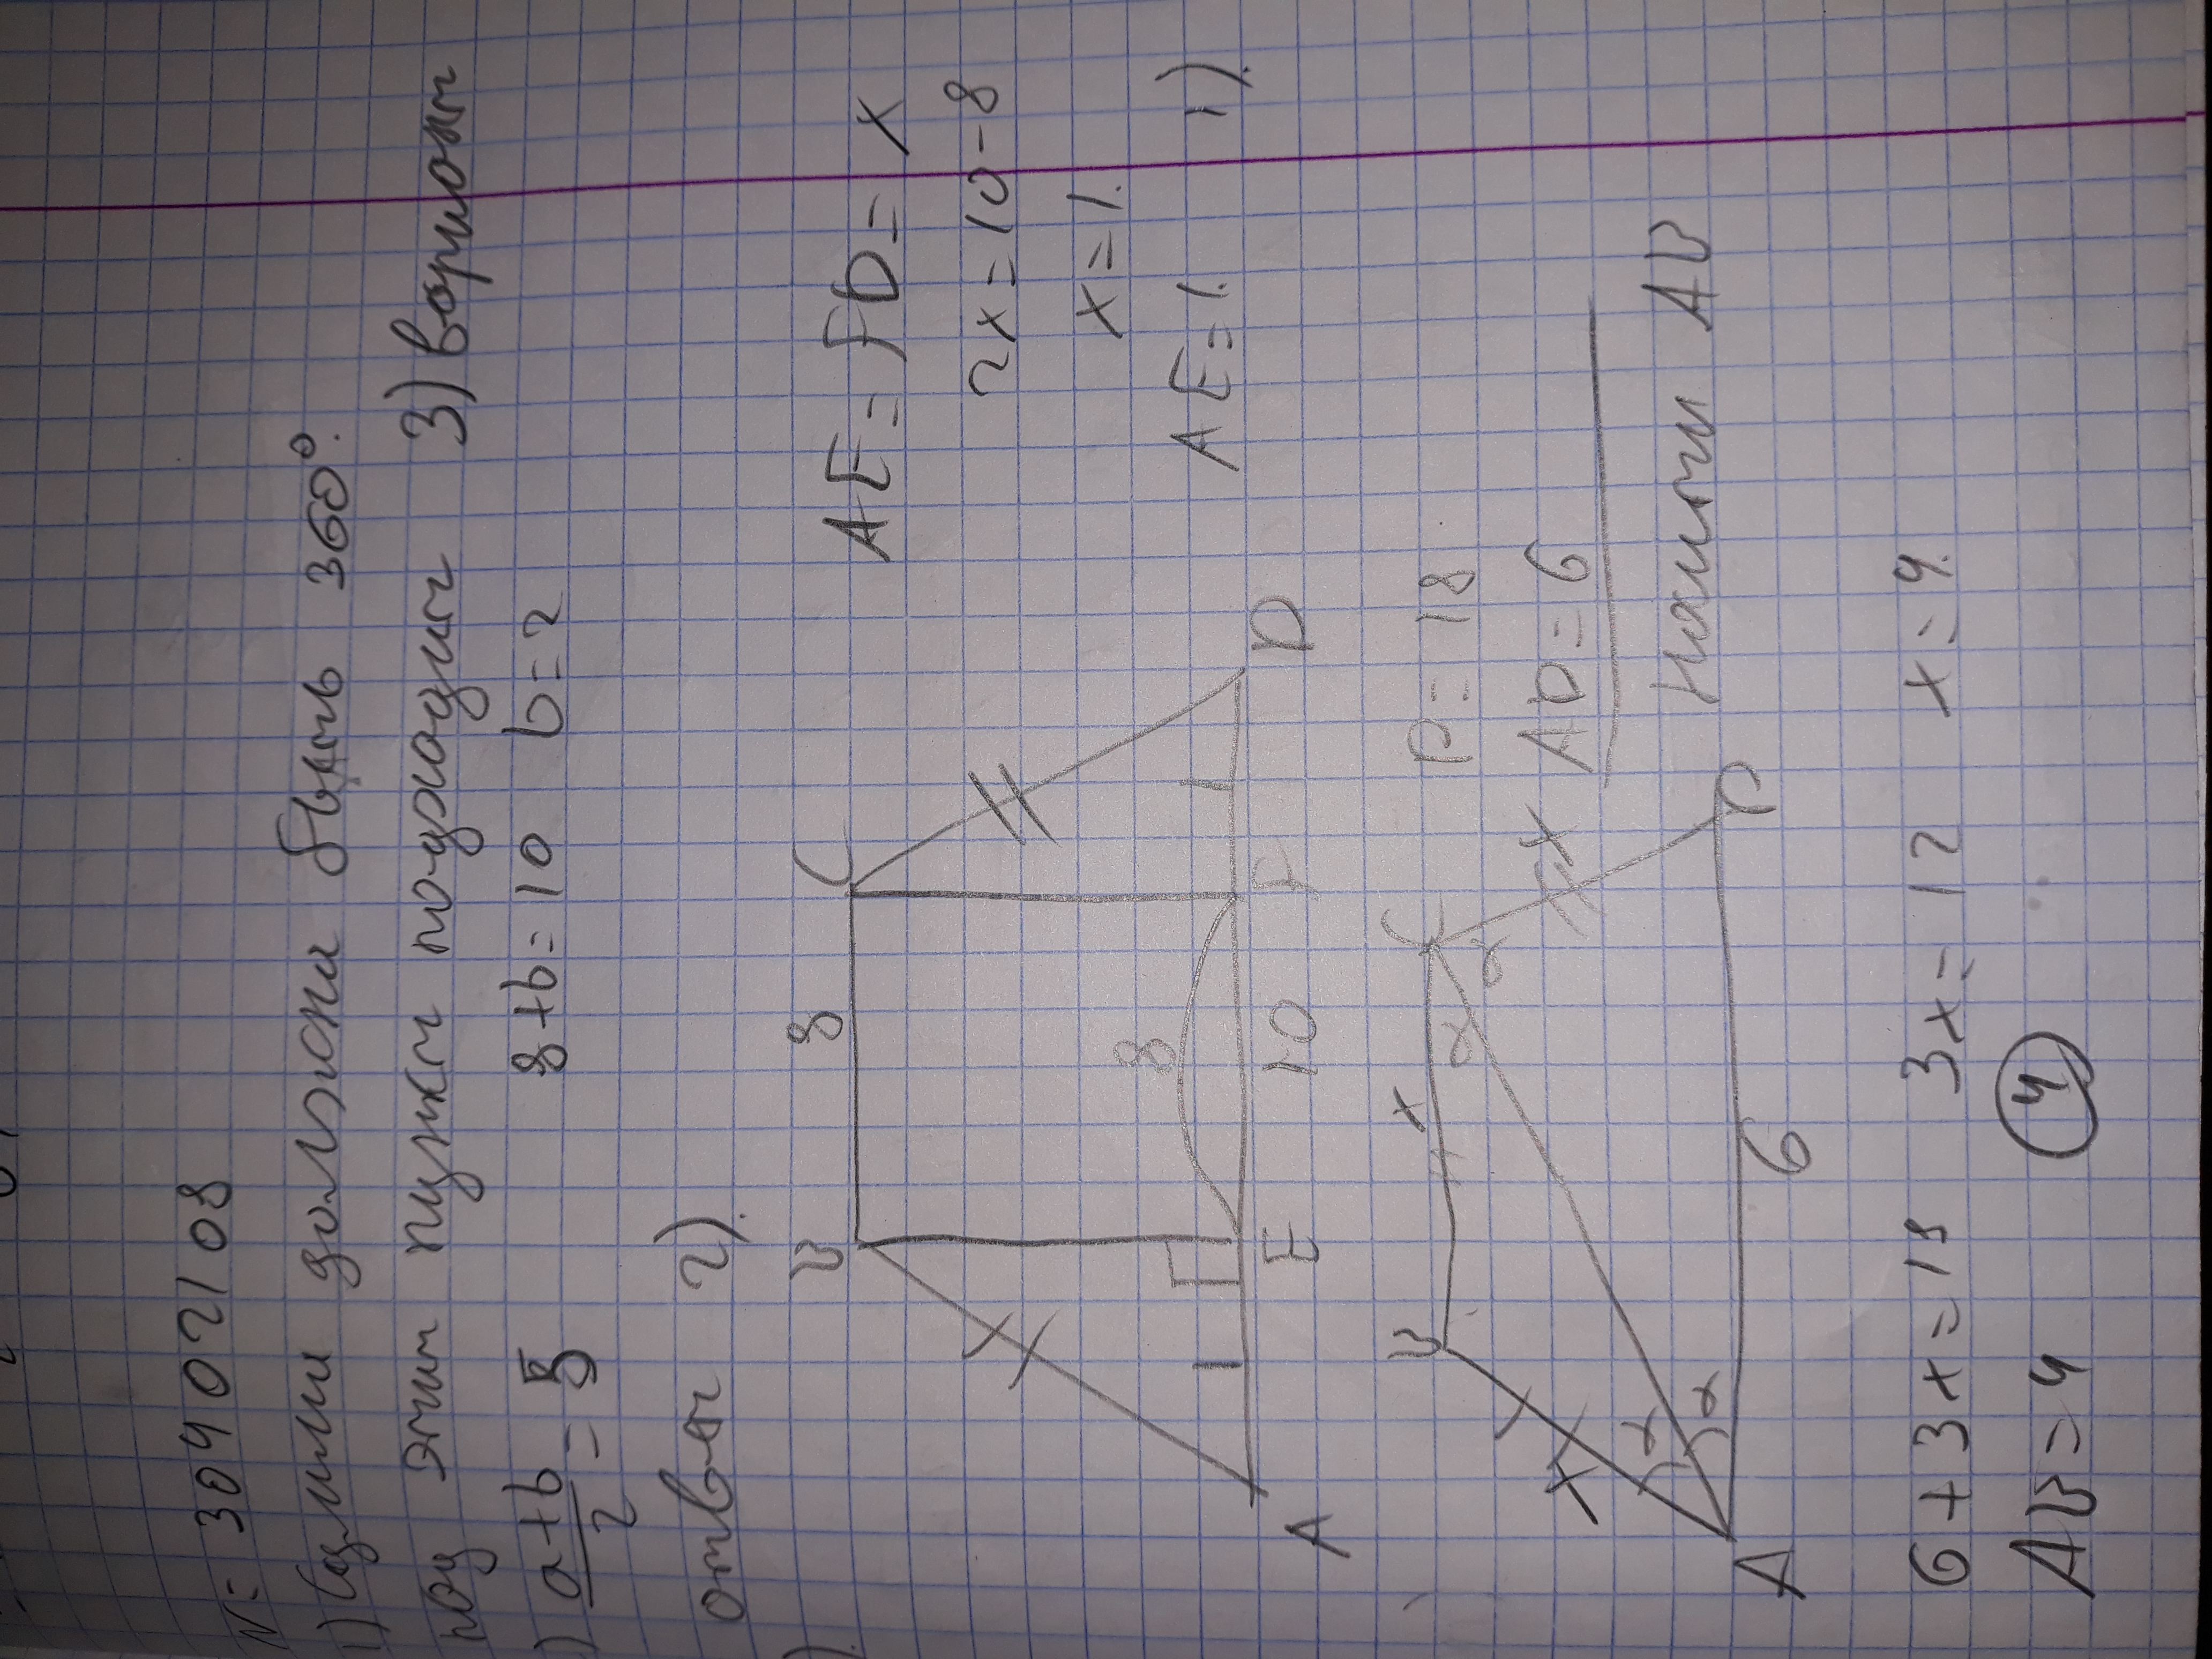 N= 304 02108
1) Сумми должни быть 360°.
под этим пункт подходит 3) вариант
) a+b/2 = 5 8+b=10 b=2
ответ 2).
).
B 8 C
AE = FD = x
2x = 10-8
x = 1.
AE = 1. 1).
8
A E 10 F D
B x C
P = 18
AD = 6
Найти AB
x x
α α α α
A 6 D
6+3x=18 3x=12 x=4.
AB=4 4